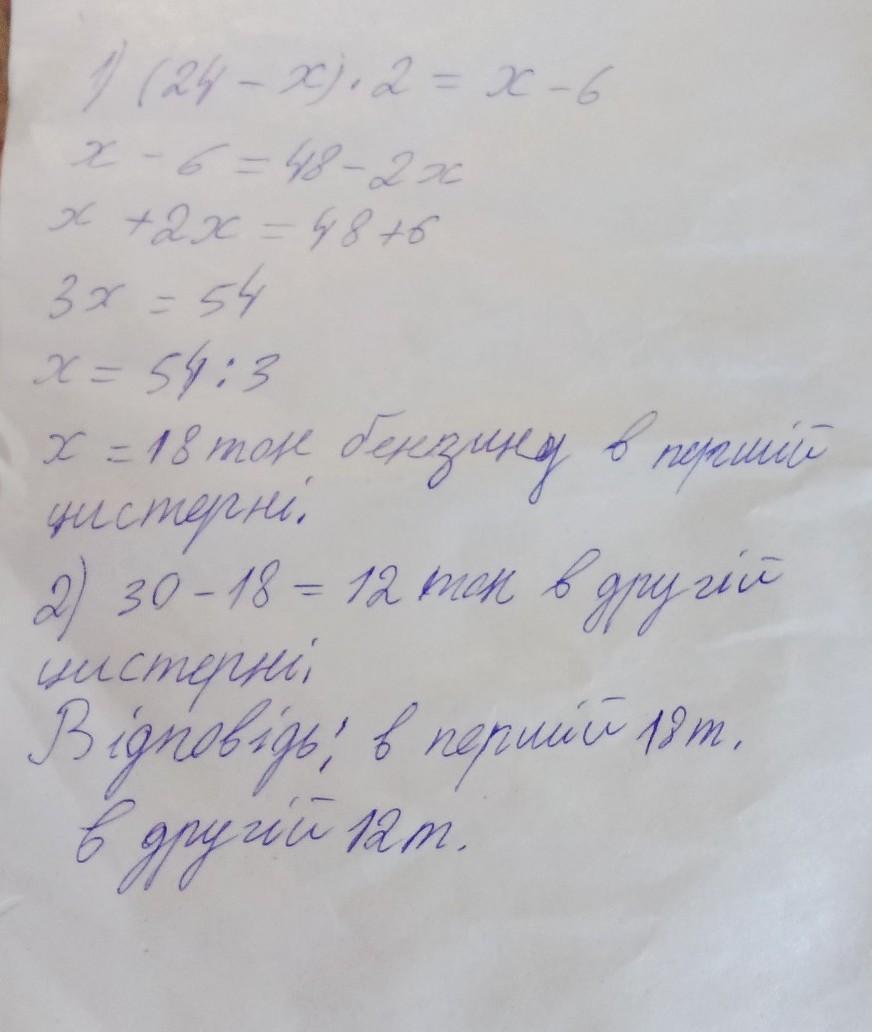 1) (24 - x) · 2 = x - 6
x - 6 = 48 - 2x
x + 2x = 48 + 6
3x = 54
x = 54 : 3
x = 18 тон бензину в першій
цистерні.
2) 30 - 18 = 12 тон в другій
цистерні.
Відповідь: в першій 18т.
в другій 12т.